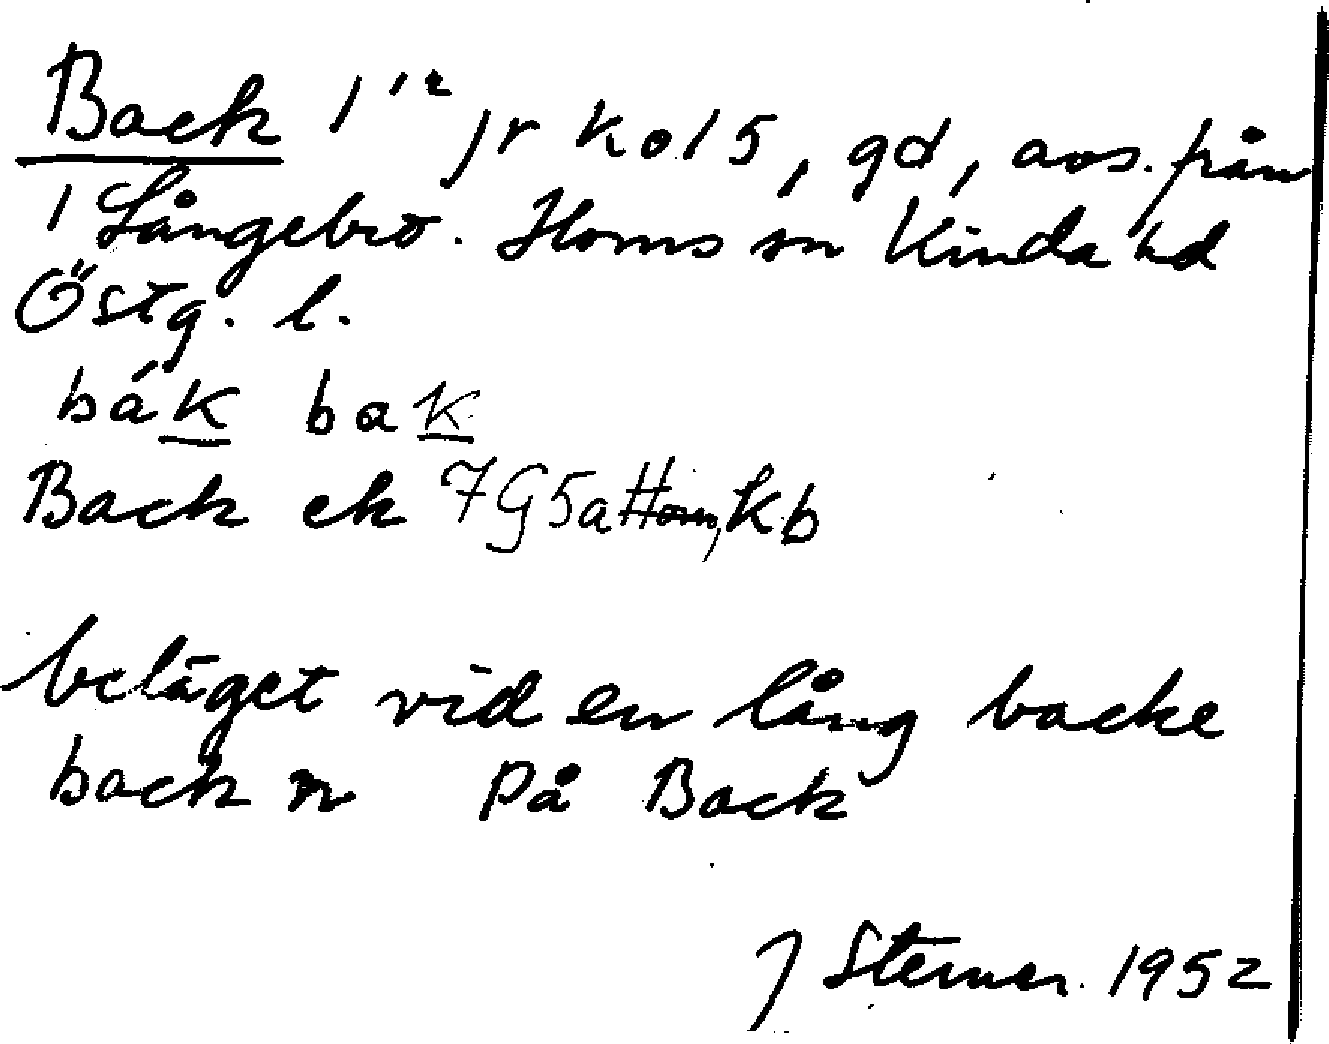 Back 1 1/2 jr ko 15, gd, avs. från
1 Långebro. Horns sn Kinda hd
Östg. l.
bák bak
Back ek 7G5a Horn, Kb
beläget vid en lång backe
back n På Back
J Sterner. 1952